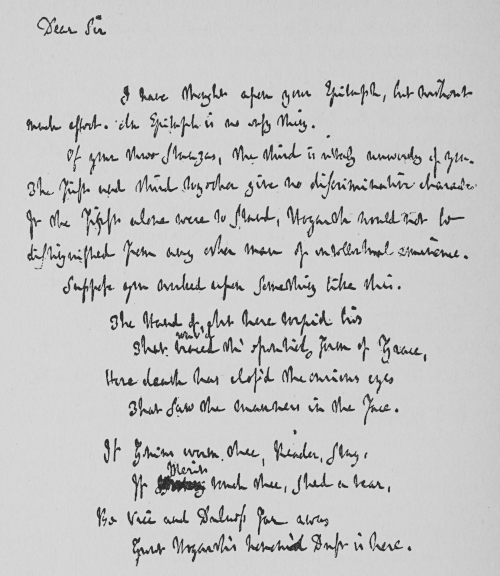 Dear Sir
I have thought upon your Epitaph, but without
much effort. An Epitaph is no easy thing.
Of your three stanzas, the third is utterly unworthy of you.
The first and third together give no discriminative character
If the first alone were to stand, Hogarth would not be
distinguished from any other man of intellectual eminence.
Suppose you worked upon something like this.
The Hand of Art here torpid lies
wav'd
That traced th' essential form of Grace,
Here death has clos'd the curious eyes
That saw the manners in the Face.
If Genius warm thee, Reader, stay,
Merit
If touch thee, shed a tear,
Be Vice and Dulness far away
Great Hogarth's honour'd Dust is here.